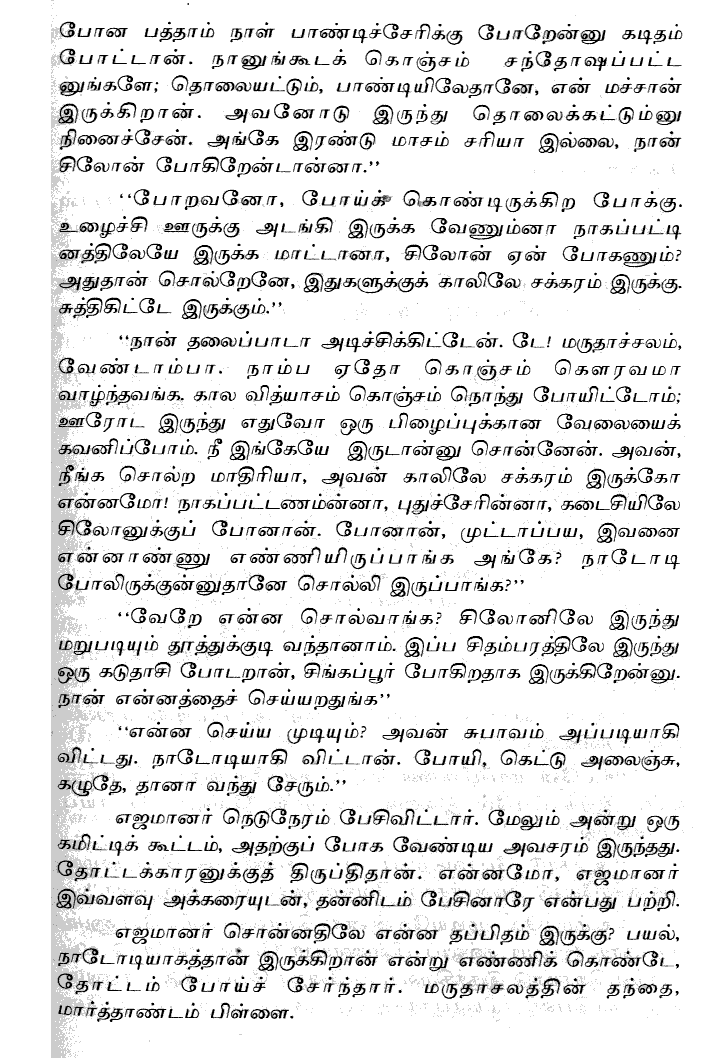 போன பத்தாம் நாள் பாண்டிச்சேரிக்கு போறேன்னு கடிதம்
போட்டான். நானுங்கூடக் கொஞ்சம் சந்தோஷப்பட்ட
னுங்களே; தொலையட்டும், பாண்டியிலேதானே, என் மச்சான்
இருக்கிறான். அவனோடு இருந்து தொலைக்கட்டும்னு
நினைச்சேன். அங்கே இரண்டு மாசம் சரியா இல்லை, நான்
சிலோன் போகிறேன்டான்னா.’’
‘‘போறவனோ, போய்க் கொண்டிருக்கிற போக்கு.
உழைச்சி ஊருக்கு அடங்கி இருக்க வேணும்னா நாகப்பட்டி
னத்திலேயே இருக்க மாட்டானா, சிலோன் ஏன் போகணும்?
அதுதான் சொல்றேனே, இதுகளுக்குக் காலிலே சக்கரம் இருக்கு.
சுத்திகிட்டே இருக்கும்.’’
‘‘நான் தலைப்பாடா அடிச்சிக்கிட்டேன். டே! மருதாச்சலம்,
வேண்டாம்பா. நாம்ப ஏதோ கொஞ்சம் கௌரவமா
வாழ்ந்தவங்க. கால வித்யாசம் கொஞ்சம் நொந்து போயிட்டோம்;
ஊரோட இருந்து எதுவோ ஒரு பிழைப்புக்கான வேலையைக்
கவனிப்போம். நீ இங்கேயே இருடான்னு சொன்னேன். அவன்,
நீங்க சொல்ற மாதிரியா, அவன் காலிலே சக்கரம் இருக்கோ
என்னமோ! நாகப்பட்டணம்ன்னா, புதுச்சேரின்னா, கடைசியிலே
சிலோனுக்குப் போனான். போனான், முட்டாப்பய, இவனை
என்னாண்ணு எண்ணியிருப்பாங்க அங்கே? நாடோடி
போலிருக்குன்னுதானே சொல்லி இருப்பாங்க?’’
‘‘வேறே என்ன சொல்வாங்க? சிலோனிலே இருந்து
மறுபடியும் தூத்துக்குடி வந்தானாம். இப்ப சிதம்பரத்திலே இருந்து
ஒரு கடுதாசி போடறான், சிங்கப்பூர் போகிறதாக இருக்கிறேன்னு.
நான் என்னத்தைச் செய்யறதுங்க’’
‘‘என்ன செய்ய முடியும்? அவன் சுபாவம் அப்படியாகி
விட்டது. நாடோடியாகி விட்டான். போயி, கெட்டு அலைஞ்சு,
கழுதே, தானா வந்து சேரும்.’’
எஜமானர் நெடுநேரம் பேசிவிட்டார். மேலும் அன்று ஒரு
கமிட்டிக் கூட்டம், அதற்குப் போக வேண்டிய அவசரம் இருந்தது.
தோட்டக்காரனுக்குத் திருப்திதான். என்னமோ, எஜமானர்
இவ்வளவு அக்கரையுடன், தன்னிடம் பேசினாரே என்பது பற்றி.
எஜமானர் சொன்னதிலே என்ன தப்பிதம் இருக்கு? பயல்,
நாடோடியாகத்தான் இருக்கிறான் என்று எண்ணிக் கொண்டே,
தோட்டம் போய்ச் சேர்ந்தார். மருதாசலத்தின் தந்தை,
மார்த்தாண்டம் பிள்ளை.